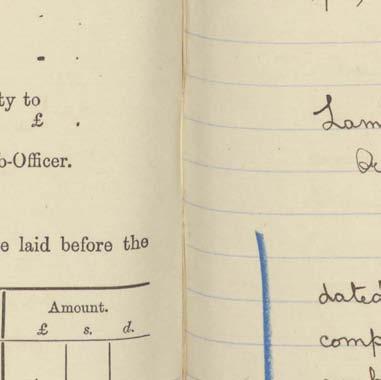 ty to
£ .
b-Officer.
e laid before the
Amount.
£ s. d.
Lam
dated
comp